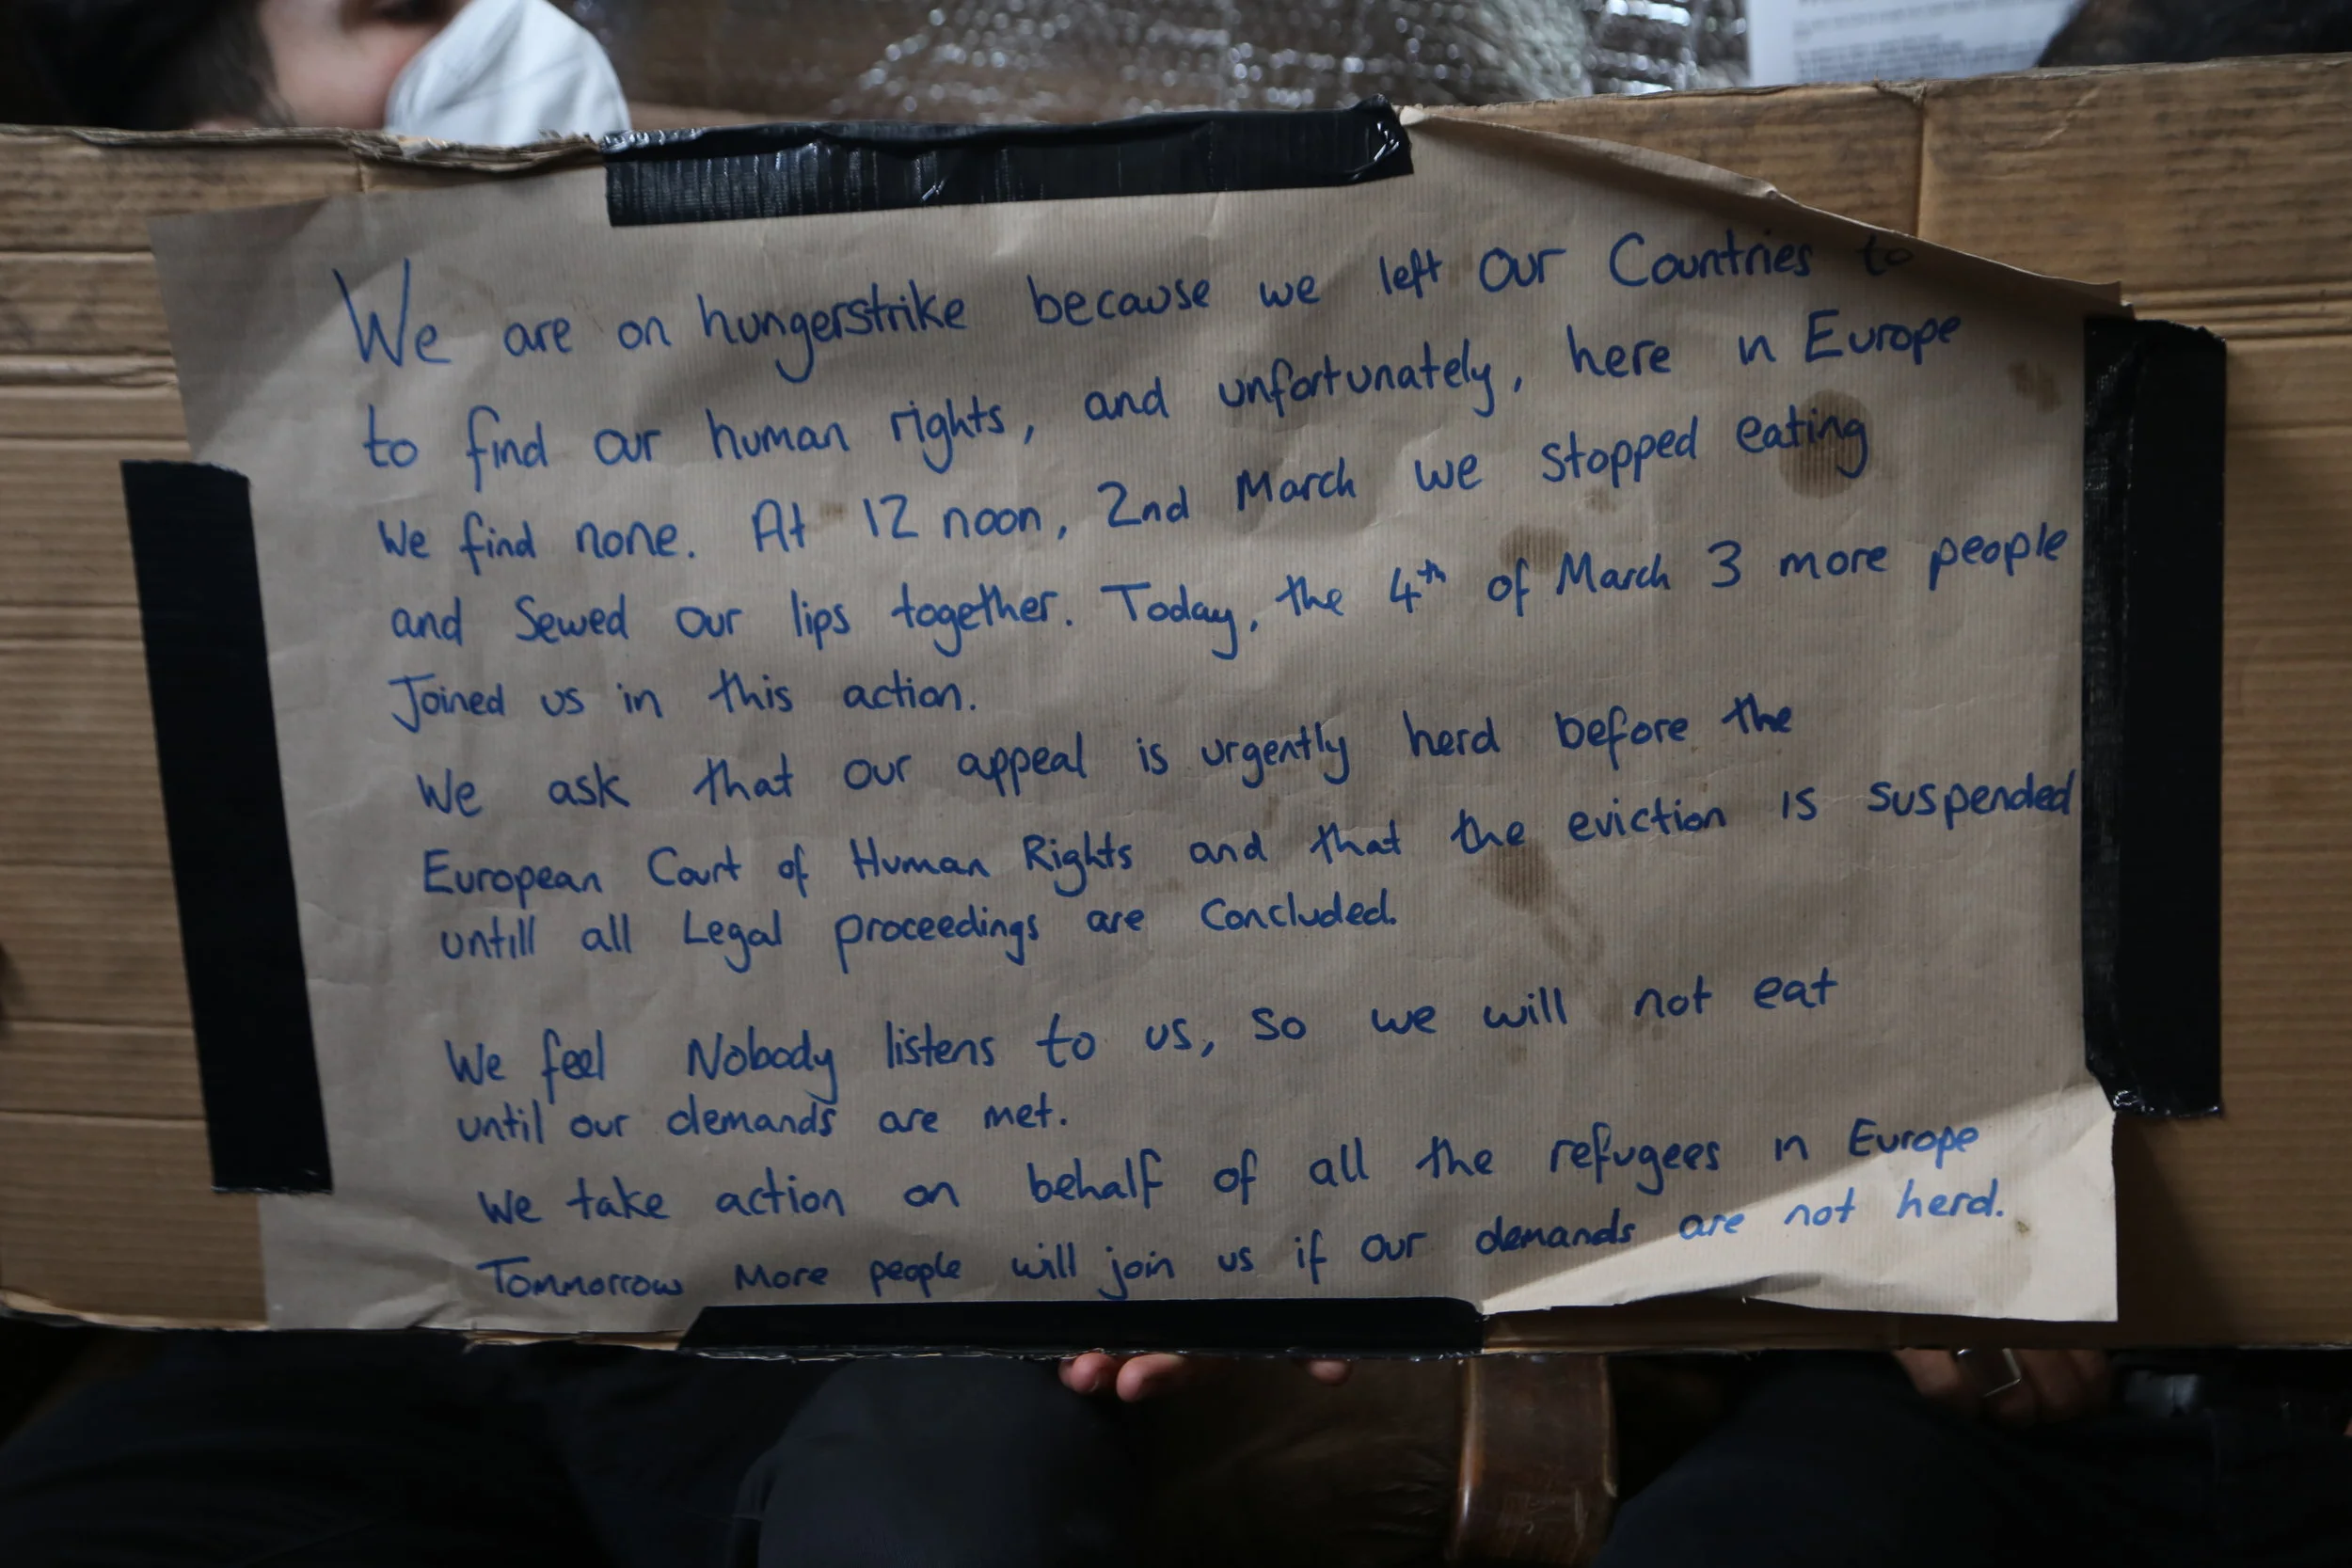 We are on hungerstrike because we left our Countries to
to find our human rights, and unfortunately, here in Europe
We find none. At 12 noon, 2nd March we stopped eating
and Sewed our lips together. Today, the 4th of March 3 more people
Joined us in this action.
We ask that our appeal is urgently herd before the
European Court of Human Rights and that the eviction is suspended
untill all Legal proceedings are Concluded.
We feel Nobody listens to us, so we will not eat
until our demands are met.
We take action on behalf of all the refugees in Europe
Tommorrow More people will join us if our demands are not herd.